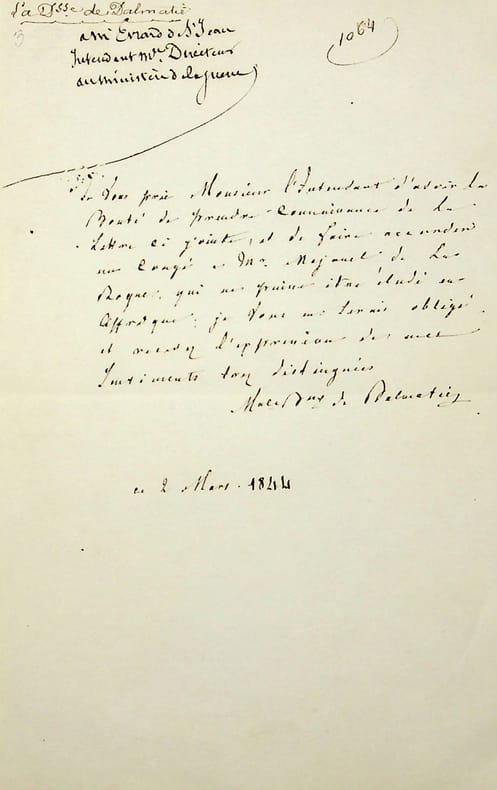 La Dsse de Dalmatie
1064
3
a Mr Evrard de St Jean
Intendant Mre Directeur
au ministère de la guerre
Je Vous prie Monsieur l'Intendant d'avoir la
Bonté de prendre Connaissance de La
Lettre ci jointe, et de faire accorder
un Congé a Mr de La
Roque, qui ne puisse être en
Affrique; je Vous en serais obligé
et recevez l'expression de mes
sentiments trez distingués
Male Dsse de Dalmatie
ce 2 Mars. 1844